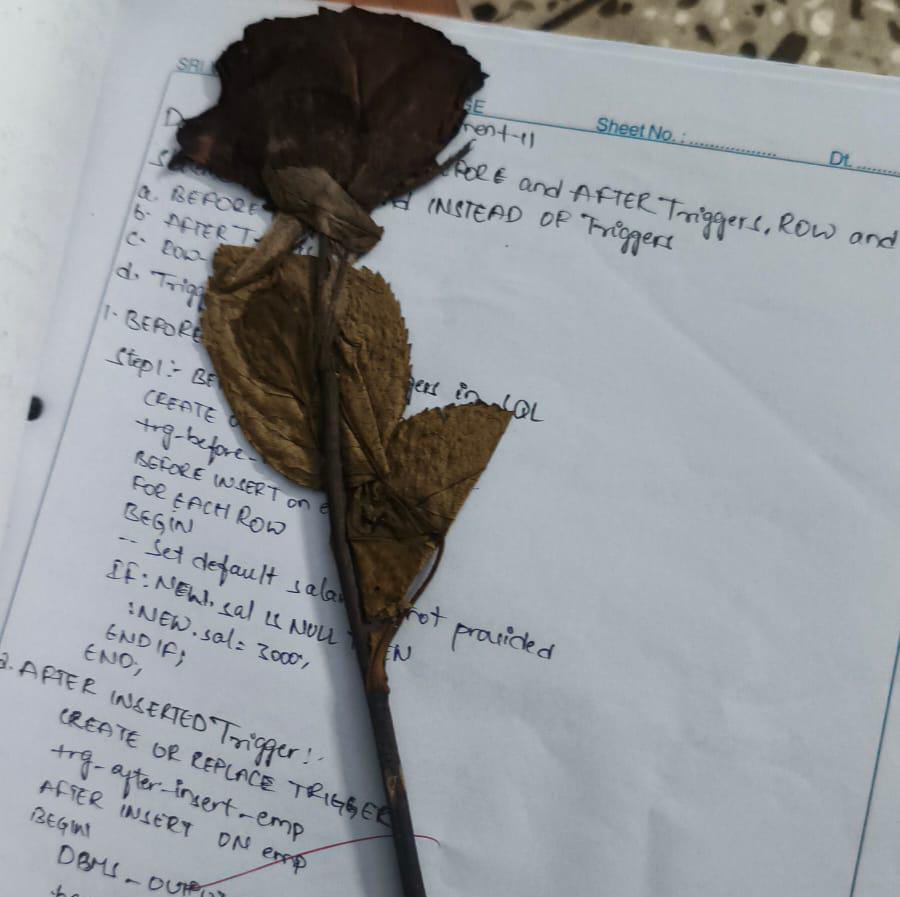 SRI GE
Sheet No. :
Dt.
D ment-11
BEFORE and AFTER Triggers, ROW and
a. BEFORE d INSTEAD OF Triggers
b. AFTER T
c. ROW
d. Trigg
1. BEFORE
Step1:- BE gers in SQL
CREATE O
trg-before-
BEFORE INSERT on e
FOR EACH ROW
BEGIN
-- Set default sala not provided
IF :NEW.sal is NULL THEN
:NEW.sal= 3000;
END IF;
END;
2. AFTER INSERTED Trigger:-
CREATE OR REPLACE TRIGGER
trg-after-insert-emp
AFTER INSERT ON emp
BEGIN
DBMS-OUTPUT